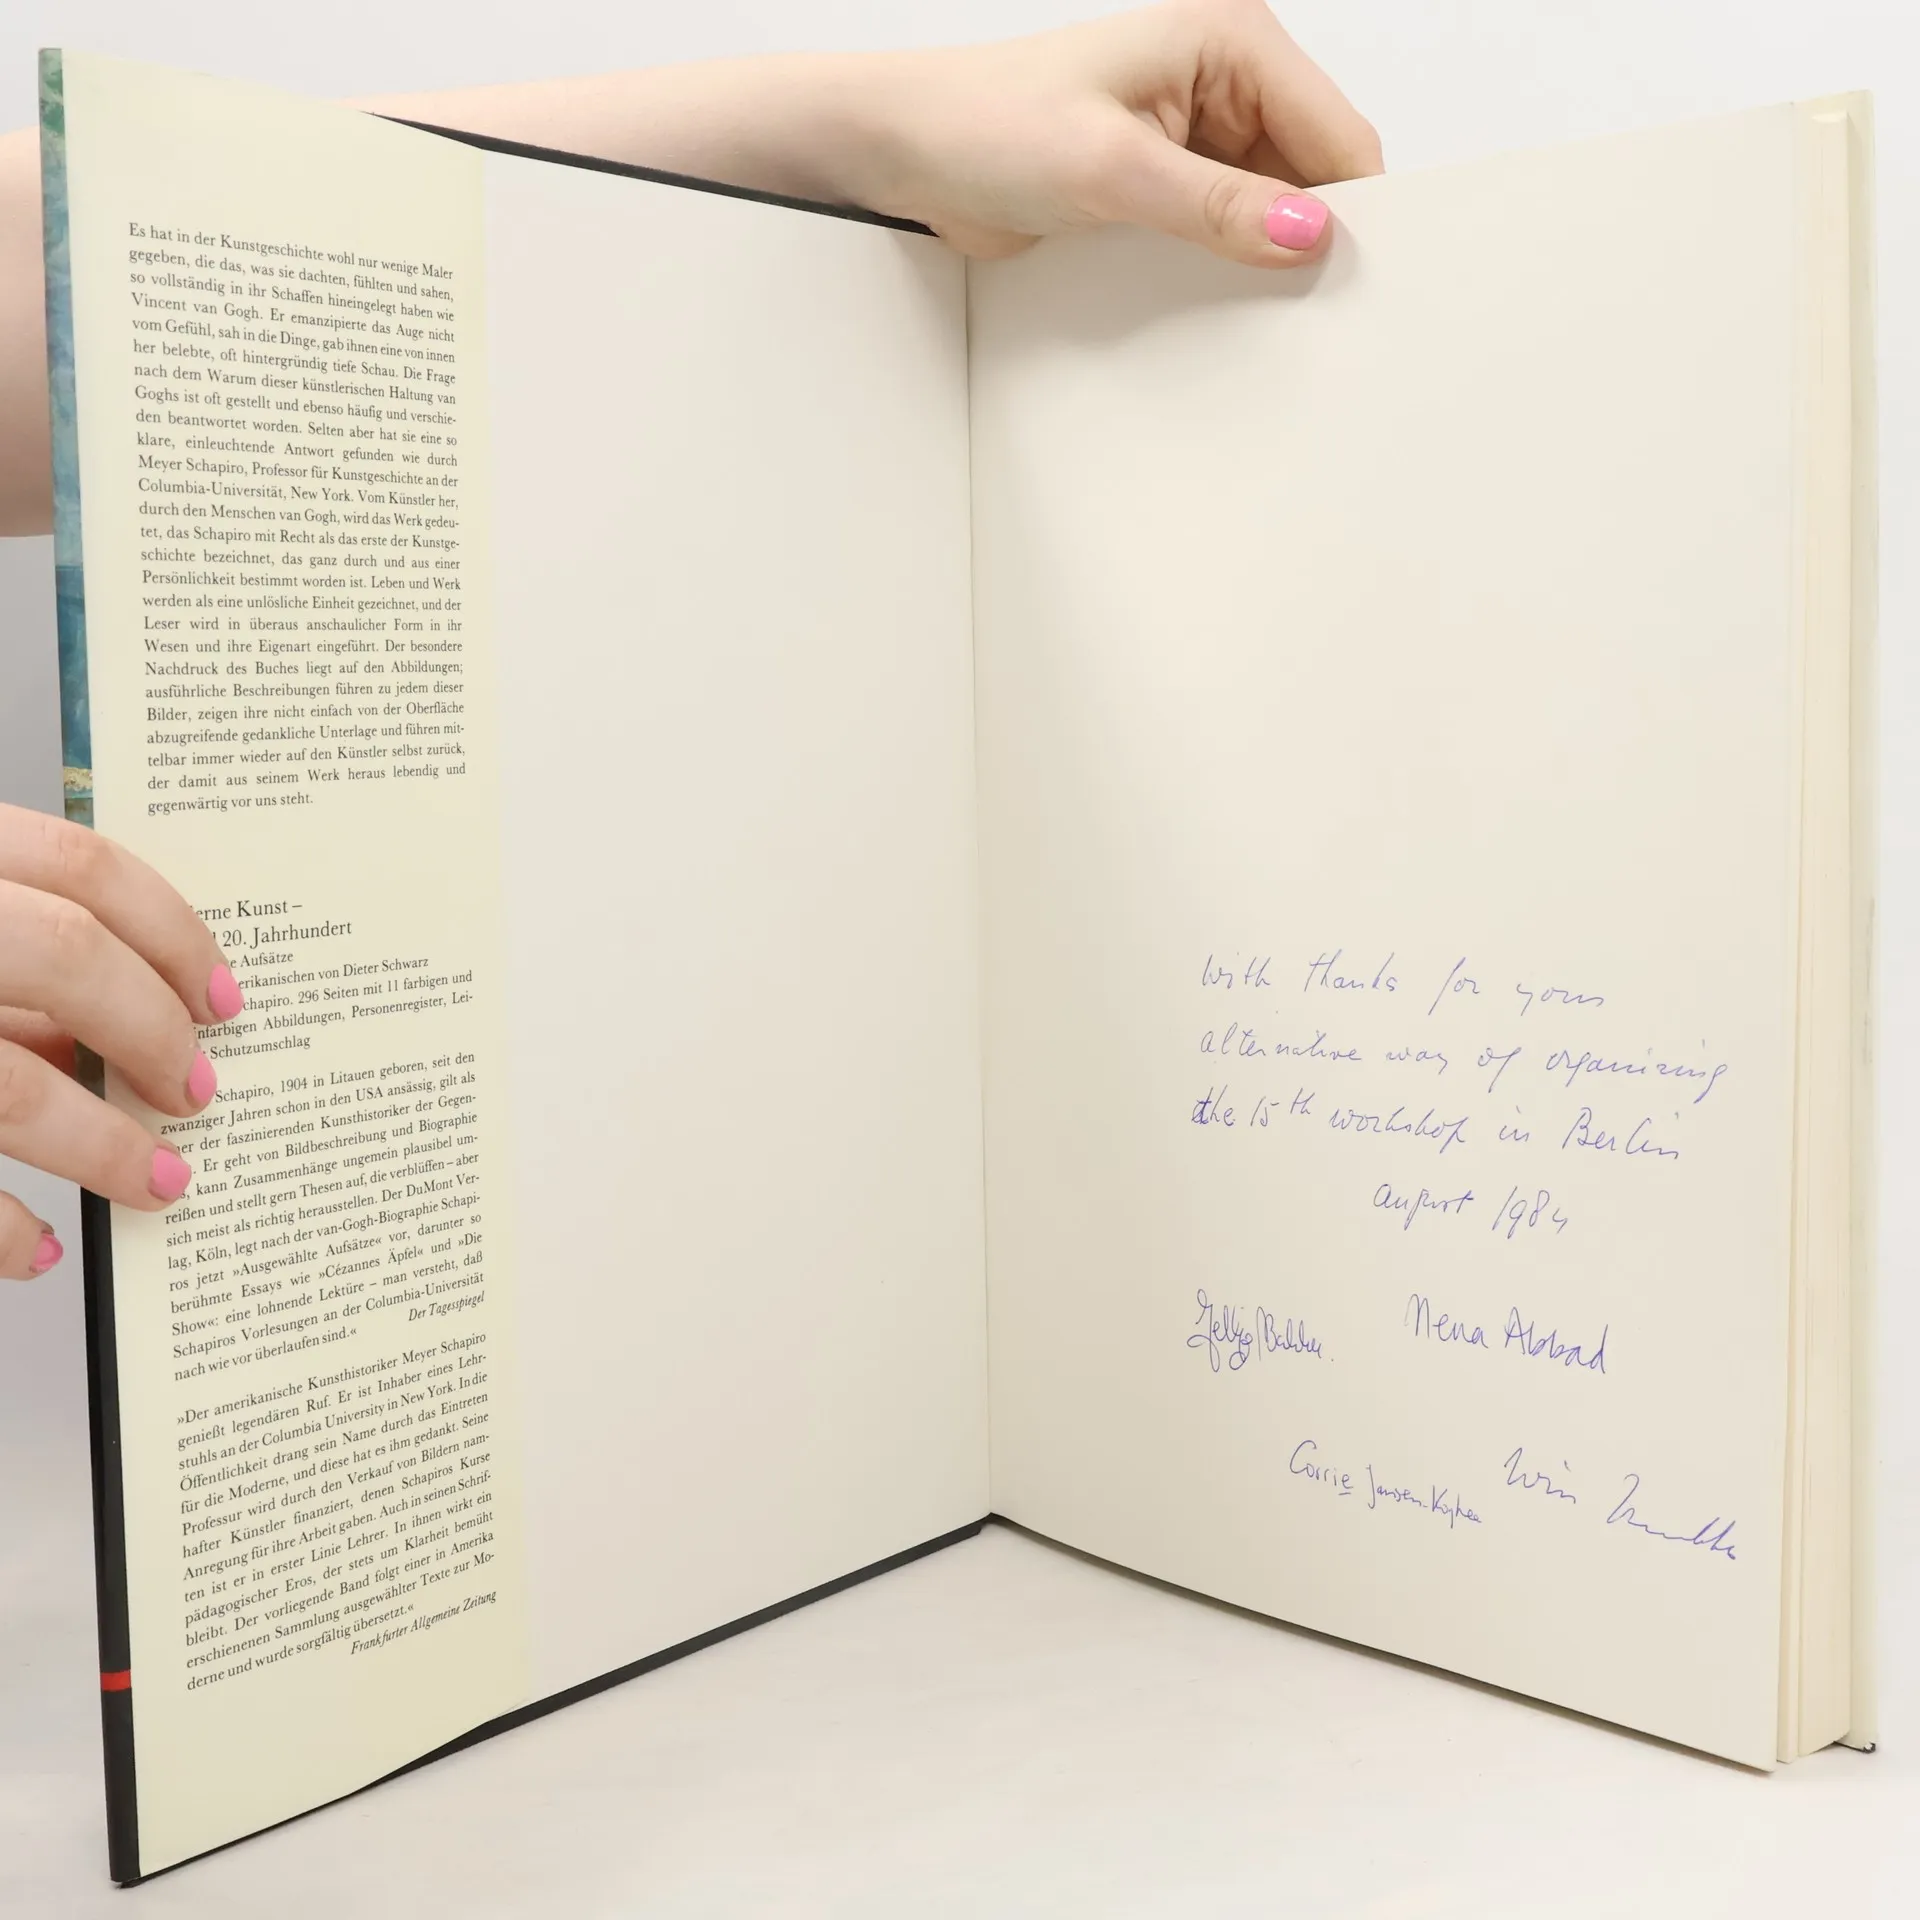 Es hat in der Kunstgeschichte wohl nur wenige Maler
gegeben, die das, was sie dachten, fühlten und sahen,
so vollständig in ihr Schaffen hineingelegt haben wie
Vincent van Gogh. Er emanzipierte das Auge nicht
vom Gefühl, sah in die Dinge, gab ihnen eine von innen
her belebte, oft hintergründig tiefe Schau. Die Frage
nach dem Warum dieser künstlerischen Haltung van
Goghs ist oft gestellt und ebenso häufig und verschie-
den beantwortet worden. Selten aber hat sie eine so
klare, einleuchtende Antwort gefunden wie durch
Meyer Schapiro, Professor für Kunstgeschichte an der
Columbia-Universität, New York. Vom Künstler her,
durch den Menschen van Gogh, wird das Werk gedeu-
tet, das Schapiro mit Recht als das erste der Kunstge-
schichte bezeichnet, das ganz durch und aus einer
Persönlichkeit bestimmt worden ist. Leben und Werk
werden als eine unlösliche Einheit gezeichnet, und der
Leser wird in überaus anschaulicher Form in ihr
Wesen und ihre Eigenart eingeführt. Der besondere
Nachdruck des Buches liegt auf den Abbildungen;
ausführliche Beschreibungen führen zu jedem dieser
Bilder, zeigen ihre nicht einfach von der Oberfläche
abzugreifende gedankliche Unterlage und führen mit-
telbar immer wieder auf den Künstler selbst zurück,
der damit aus seinem Werk heraus lebendig und
gegenwärtig vor uns steht.
erne Kunst –
20. Jahrhundert
e Aufsätze
erikanischen von Dieter Schwarz
chapiro. 296 Seiten mit 11 farbigen und
nfarbigen Abbildungen, Personenregister, Lei-
Schutzumschlag
Schapiro, 1904 in Litauen geboren, seit den
zwanziger Jahren schon in den USA ansässig, gilt als
ner der faszinierenden Kunsthistoriker der Gegen-
. Er geht von Bildbeschreibung und Biographie
s, kann Zusammenhänge ungemein plausibel um-
reißen und stellt gern Thesen auf, die verblüffen – aber
sich meist als richtig herausstellen. Der DuMont Ver-
lag, Köln, legt nach der van-Gogh-Biographie Schapi-
ros jetzt »Ausgewählte Aufsätze« vor, darunter so
berühmte Essays wie »Cézannes Äpfel« und »Die
Show«: eine lohnende Lektüre – man versteht, daß
Schapiros Vorlesungen an der Columbia-Universität
nach wie vor überlaufen sind.« Der Tagesspiegel
»Der amerikanische Kunsthistoriker Meyer Schapiro
genießt legendären Ruf. Er ist Inhaber eines Lehr-
stuhls an der Columbia University in New York. In die
Öffentlichkeit drang sein Name durch das Eintreten
für die Moderne, und diese hat es ihm gedankt. Seine
Professur wird durch den Verkauf von Bildern nam-
hafter Künstler finanziert, denen Schapiros Kurse
Anregung für ihre Arbeit gaben. Auch in seinen Schrif-
ten ist er in erster Linie Lehrer. In ihnen wirkt ein
pädagogischer Eros, der stets um Klarheit bemüht
bleibt. Der vorliegende Band folgt einer in Amerika
erschienenen Sammlung ausgewählter Texte zur Mo-
derne und wurde sorgfältig übersetzt.«
Frankfurter Allgemeine Zeitung
With thanks for your
alternative way of organizing
the 15th workshop in Berlin
august 1984
Nena Abbad
Corrie Jansen- Wim